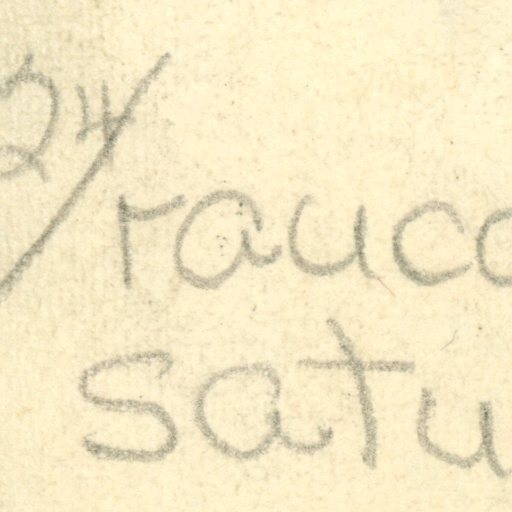 24/rauco
satu